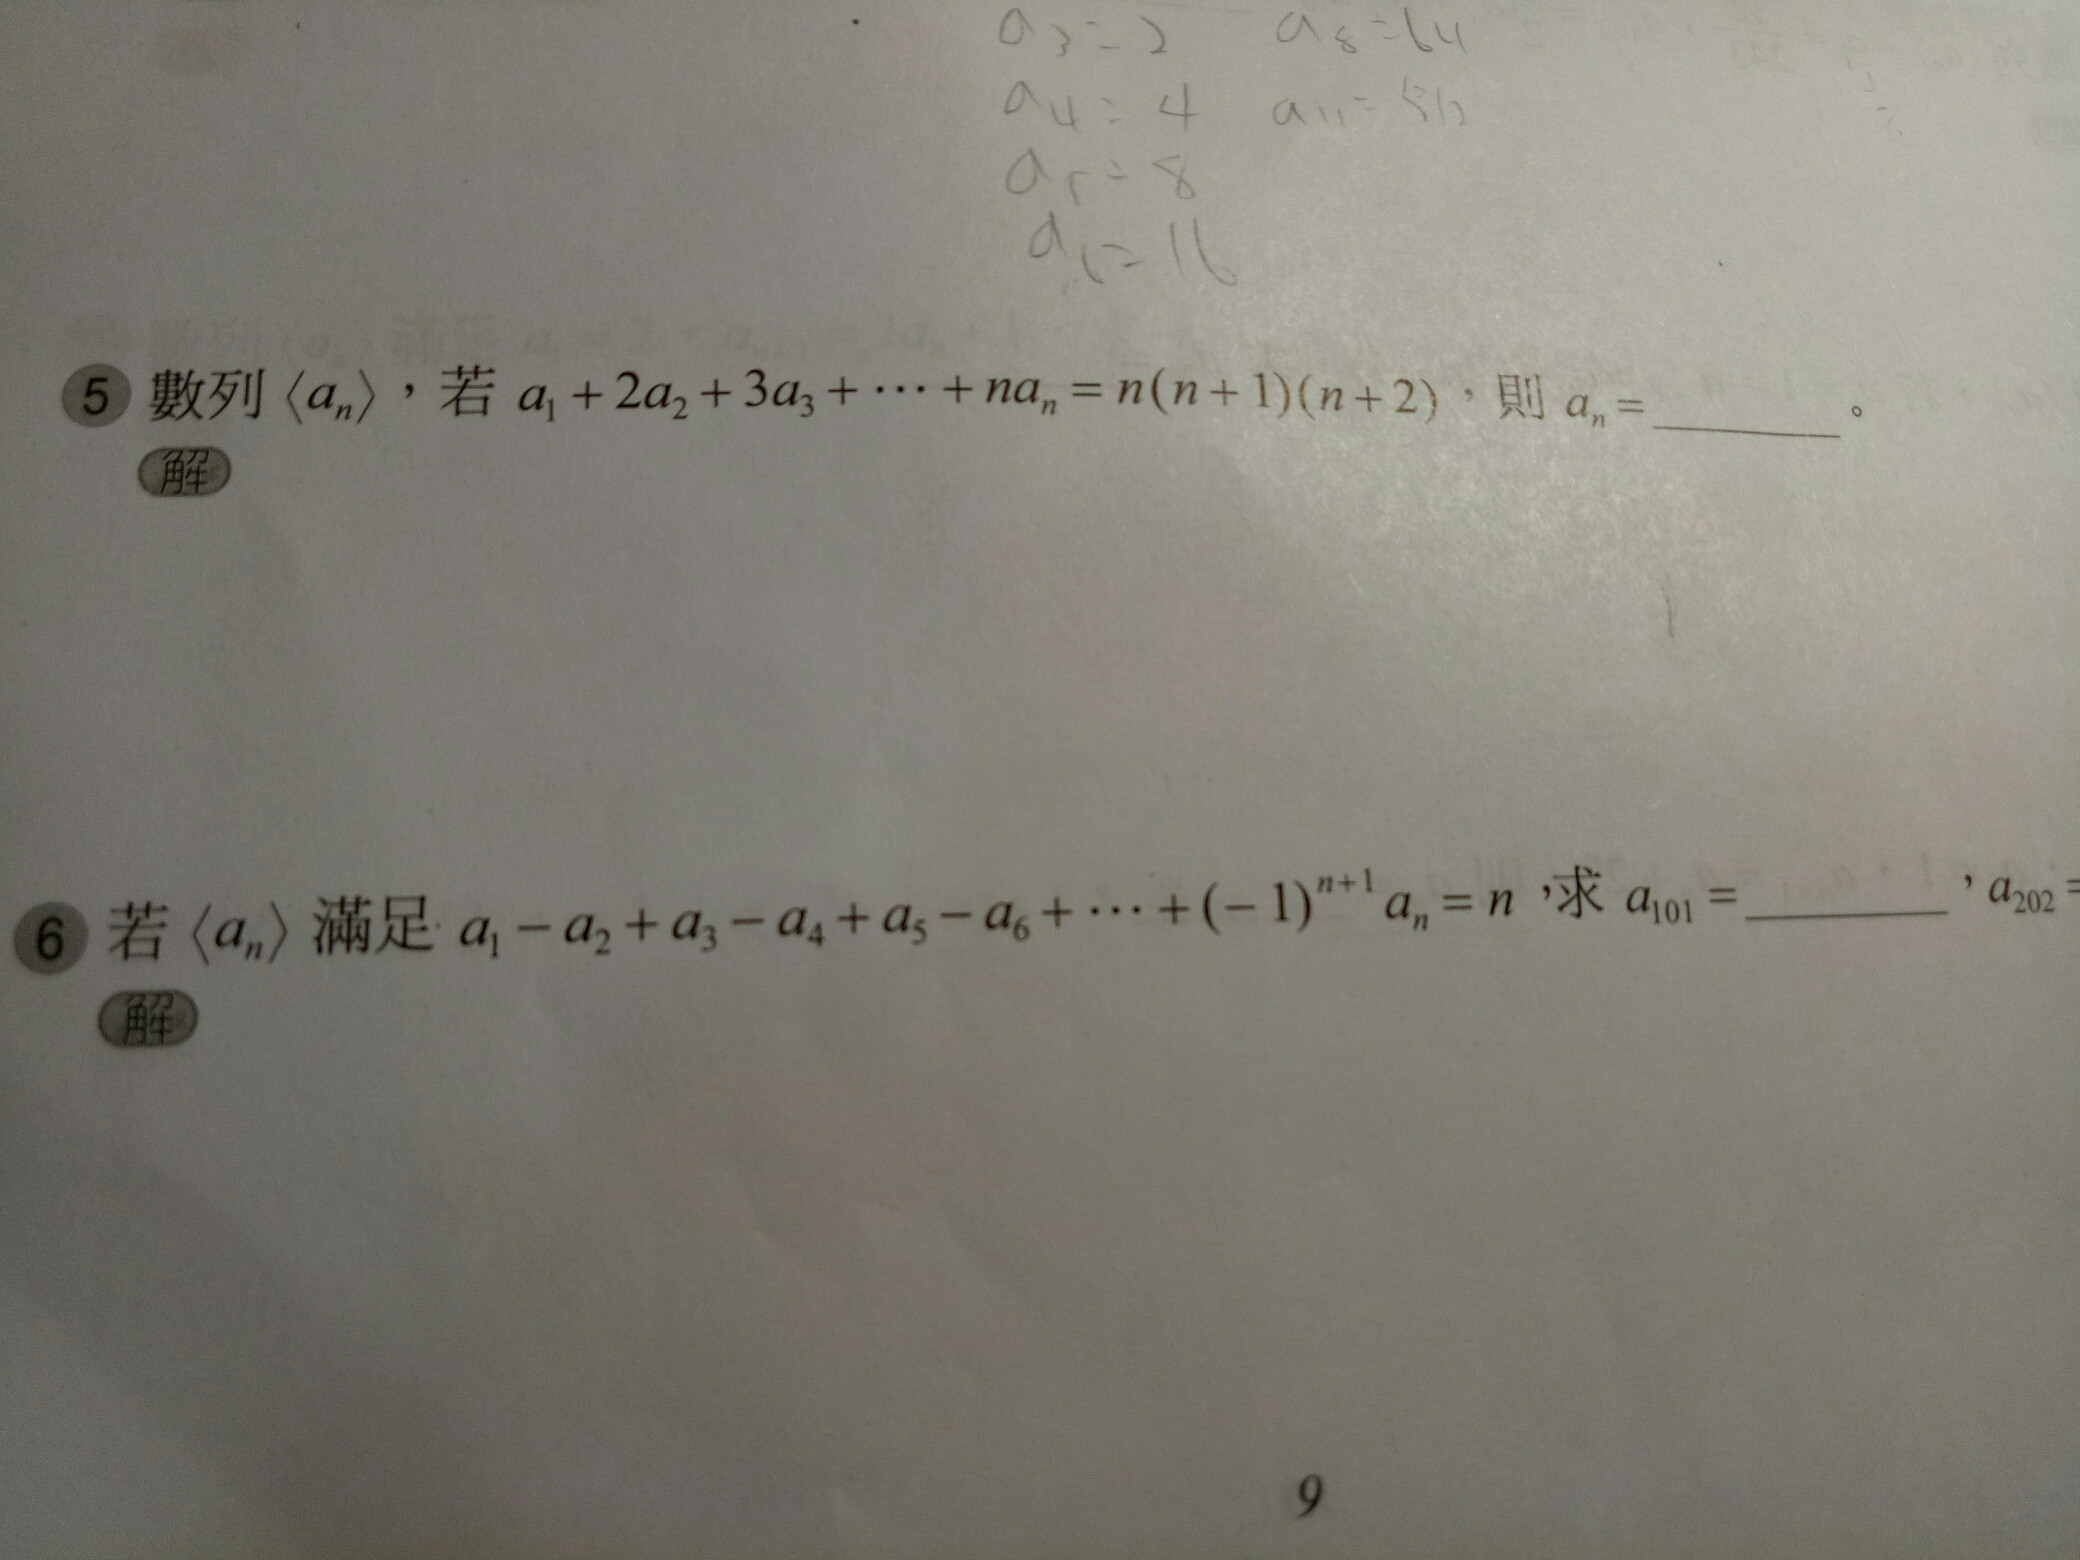 a₃=2 a₈=64
a₄=4 a₁₁=512
a₅=8
a₆=16
5 數列⟨aₙ⟩，若 a₁+2a₂+3a₃+⋯+naₙ=n(n+1)(n+2)，則 aₙ=______。
解
6 若⟨aₙ⟩滿足 a₁−a₂+a₃−a₄+a₅−a₆+⋯+(−1)ⁿ⁺¹aₙ=n，求 a₁₀₁=______，a₂₀₂=
解
9